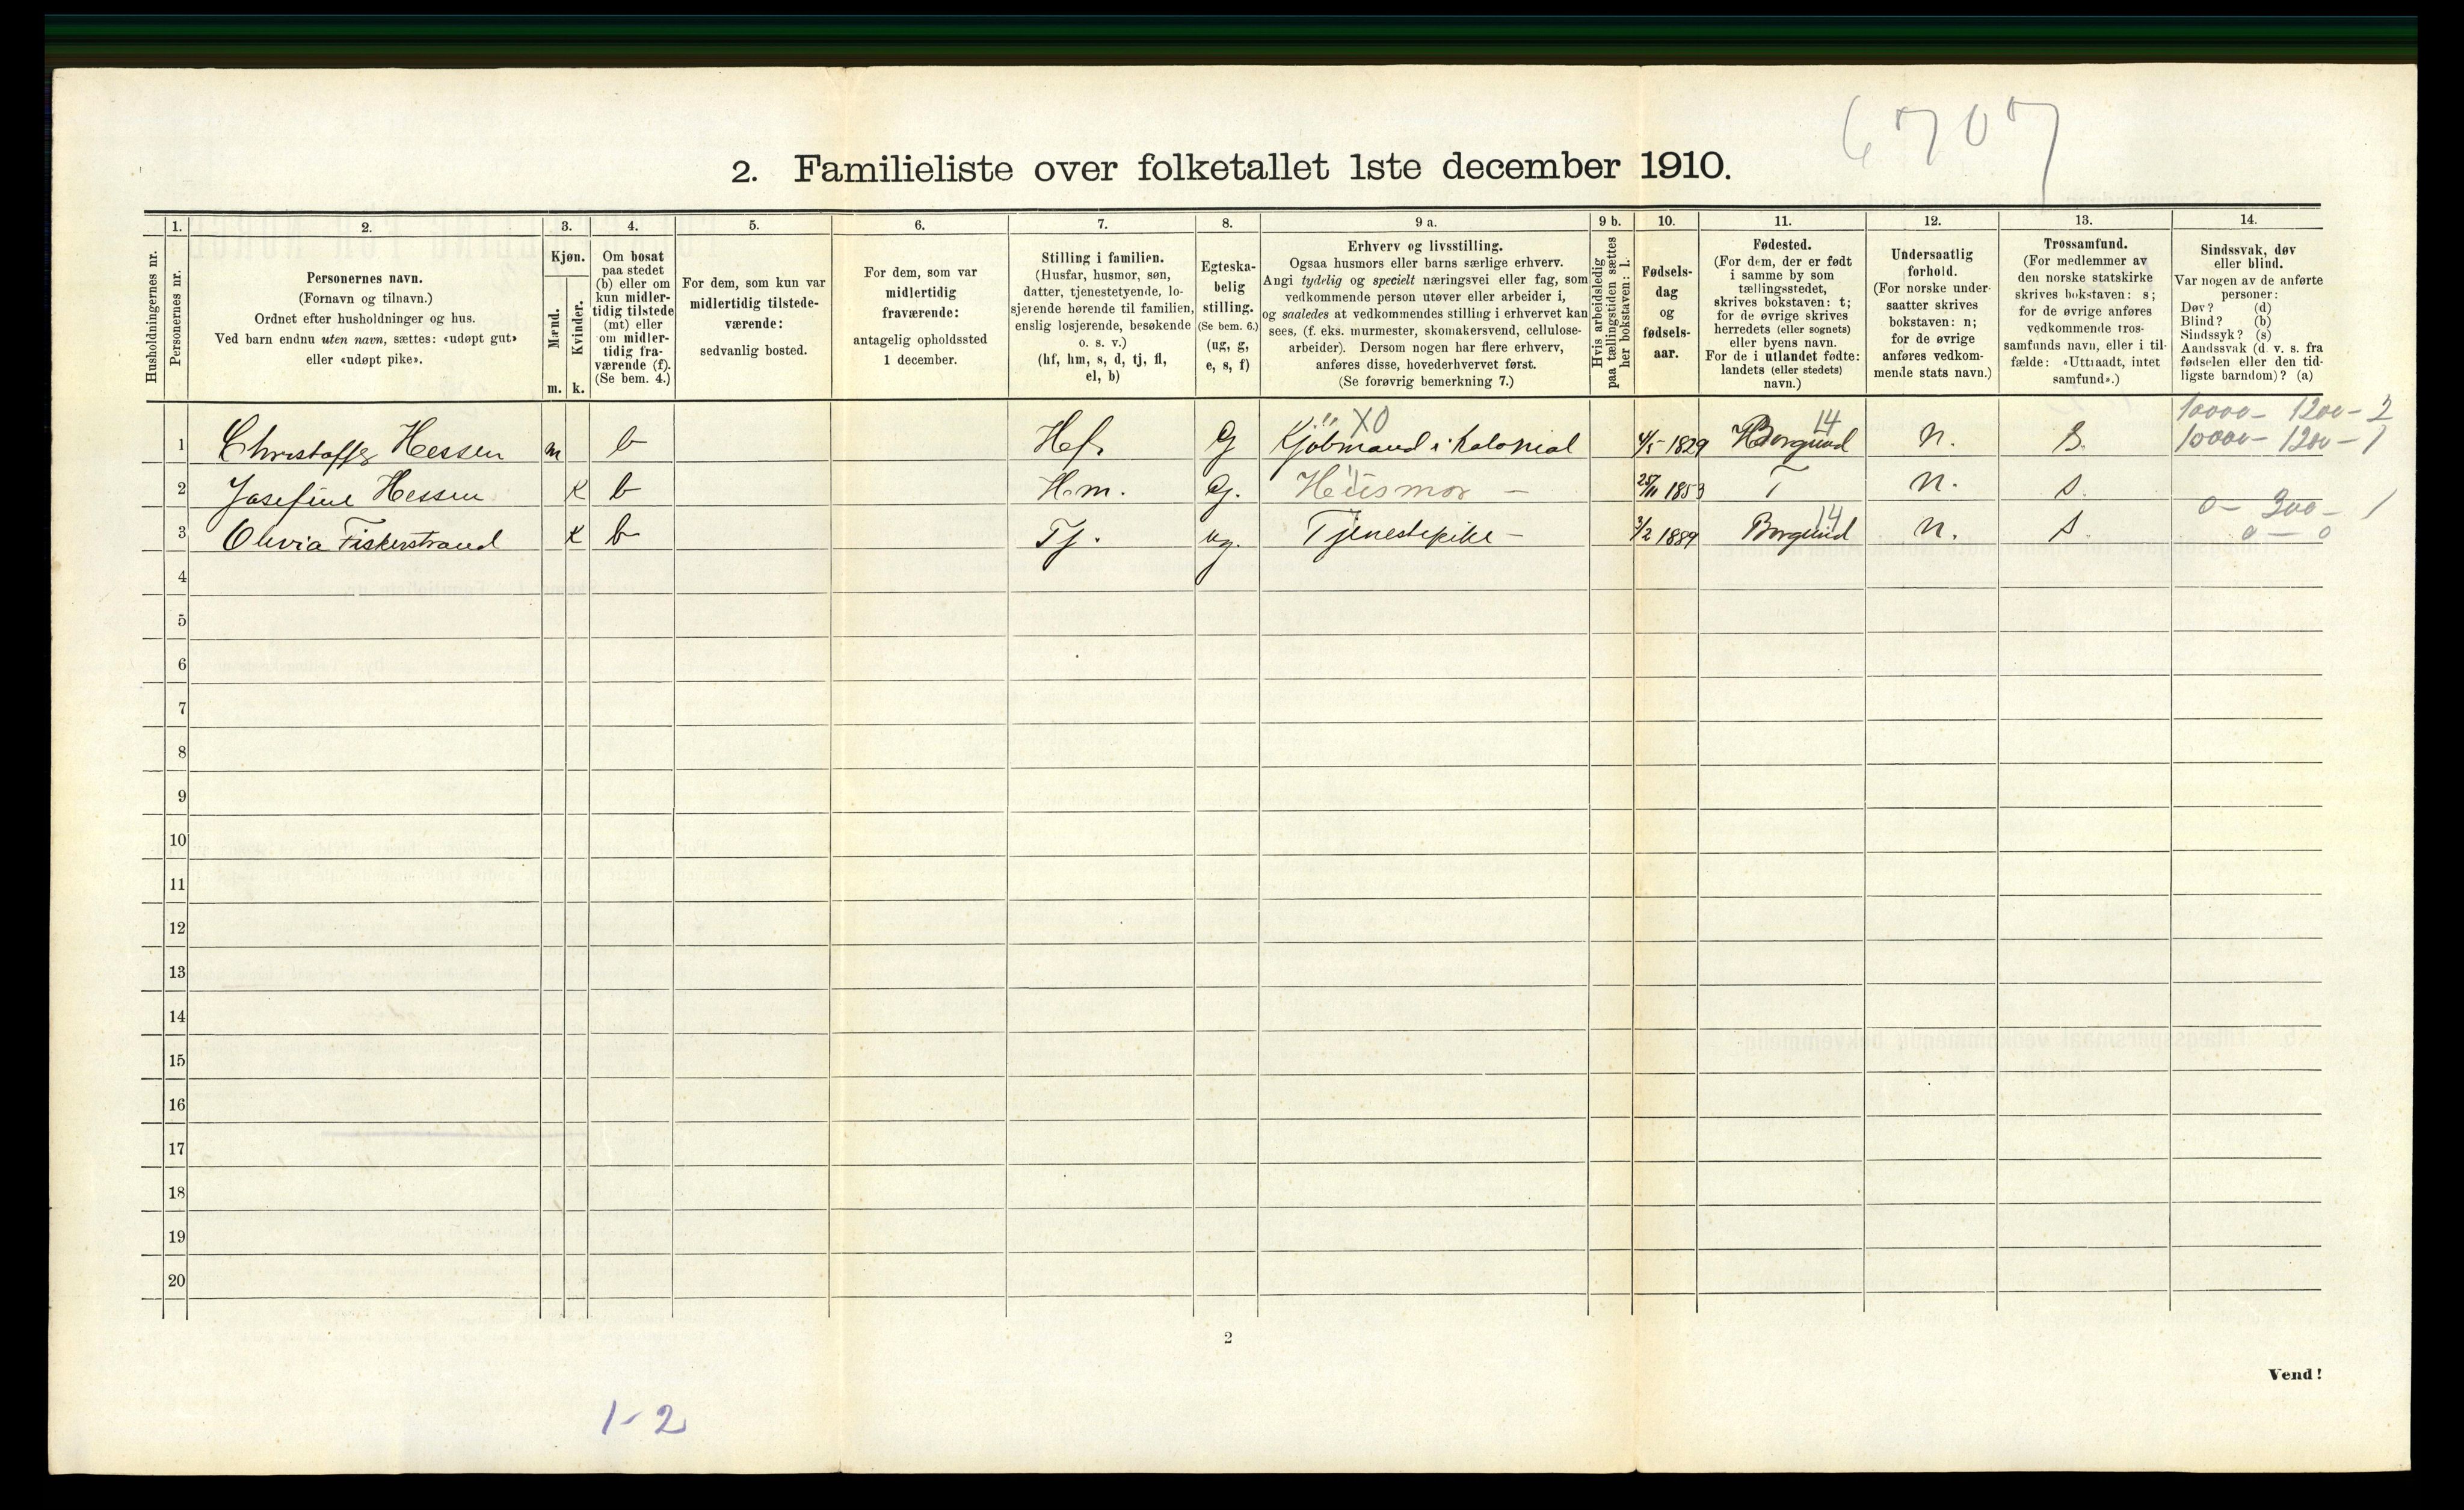 6707
2. Familieliste over folketallet 1ste december 1910.
Husholdningernes nr.
1.
Personernes nr.
2.
Personernes navn.
(Fornavn og tilnavn.)
Ordnet efter husholdninger og hus.
Ved barn endnu uten navn, sættes: «udøpt gut»
eller «udøpt pike».
3.
Kjøn.
Mænd.
Kvinder.
m. k.
4.
Om bosat
paa stedet
(b) eller om
kun midler-
tidig tilstede
(mt) eller
om midler-
tidig fra-
værende (f).
(Se bem. 4.)
5.
For dem, som kun var
midlertidig tilstede-
værende:
sedvanlig bosted.
6.
For dem, som var
midlertidig
fraværende:
antagelig opholdssted
1 december.
7.
Stilling i familien.
(Husfar, husmor, søn,
datter, tjenestetyende, lo-
sjerende hørende til familien,
enslig losjerende, besøkende
o. s. v.)
(hf, hm, s, d, tj, fl,
el, b)
8.
Egteska-
belig
stilling.
(Se bem. 6.)
(ug, g,
e, s, f)
9 a.
Erhverv og livsstilling.
Ogsaa husmors eller barns særlige erhverv.
Angi tydelig og specielt næringsvei eller fag, som
vedkommende person utøver eller arbeider i,
og saaledes at vedkommendes stilling i erhvervet kan
sees, (f. eks. murmester, skomakersvend, cellulose-
arbeider). Dersom nogen har flere erhverv,
anføres disse, hovederhvervet først.
(Se forøvrig bemerkning 7.)
9 b.
Hvis arbeidsledig
paa tællingstiden sættes
her bokstaven: l.
10.
Fødsels-
dag
og
fødsels-
aar.
11.
Fødested.
(For dem, der er født
i samme by som
tællingsstedet,
skrives bokstaven: t;
for de øvrige skrives
herredets (eller sognets)
eller byens navn.
For de i utlandet fødte:
landets (eller stedets)
navn.)
12.
Undersaatlig
forhold.
(For norske under-
saatter skrives
bokstaven: n;
for de øvrige
anføres vedkom-
mende stats navn.)
13.
Trossamfund.
(For medlemmer av
den norske statskirke
skrives bokstaven: s;
for de øvrige anføres
vedkommende tros-
samfunds navn, eller i til-
fælde: «Uttraadt, intet
samfund».)
14.
Sindssvak, døv
eller blind.
Var nogen av de anførte
personer:
Døv? (d)
Blind? (b)
Sindssyk? (s)
Aandssvak (d. v. s. fra
fødselen eller den tid-
ligste barndom)? (a)
XO 14 10000 - 1200 - 2
1 Christoffer Hessen m b Hf. G Kjöbmand i Kolonial 4/5 1829 Borgund n. S. 10000 - 1200 - 1
2 Josefine Hessen K b Hm. G. Husmor - 25/11 1853 T n. s.
14 0 - 300 - 1
3 Olivia Fiskerstrand K b Tj. ug. Tjenestepike - 3/2 1889 Borgund n. s. 0 - 0
4
5
6
7
8
9
10
11
12
13
14
15
16
17
18
19
20
2
Vend!
1-2